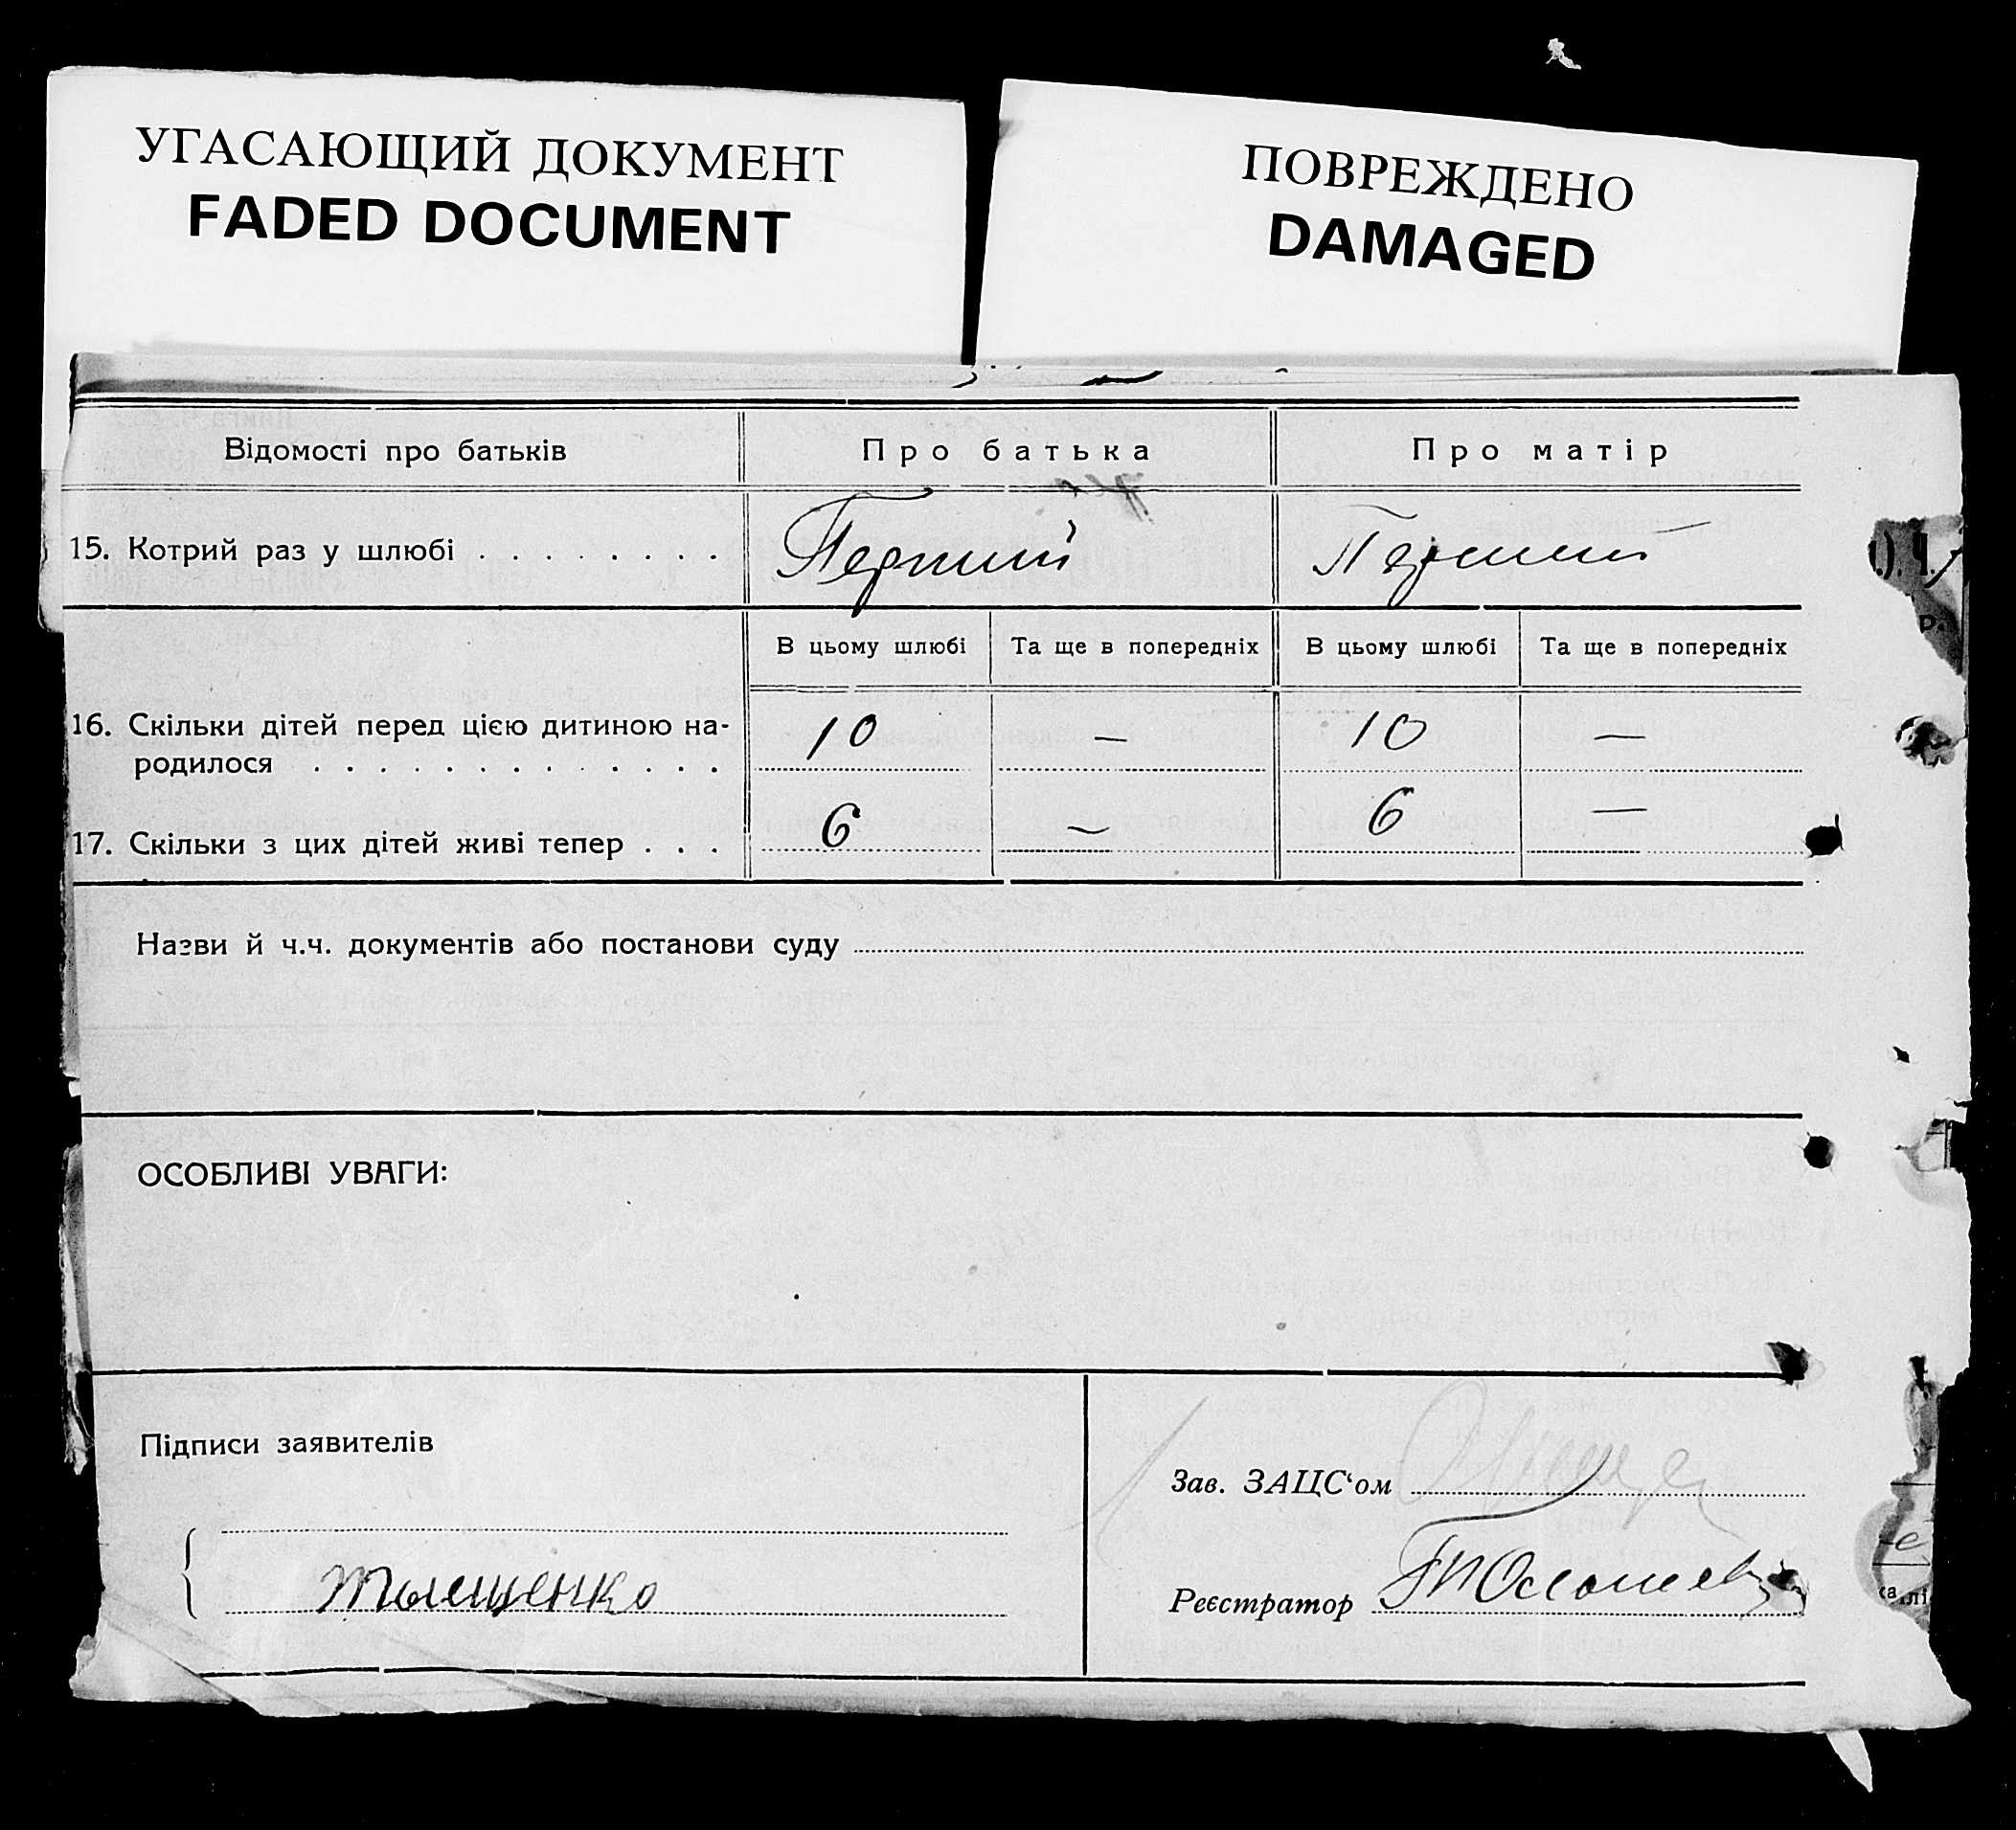 УГАСАЮЩИЙ ДОКУМЕНТ
FADED DOCUMENT
ПОВРЕЖДЕНО
DAMAGED
Відомості про батьків Про батька Про матір
15. Котрий раз у шлюбі . . . . . . . . Перший Перший
В цьому шлюбі Та ще в попередніх В цьому шлюбі Та ще в попередніх
16. Скільки дітей перед цією дитиною на-
родилося . . . . . . . . . . . . . 10 — 10 —
17. Скільки з цих дітей живі тепер . . . 6 — 6 —
Назви й ч.ч. документів або постанови суду
ОСОБЛИВІ УВАГИ:
Підписи заявителів
Зав. ЗАЦС‘ом
Тыщенко
Реєстратор